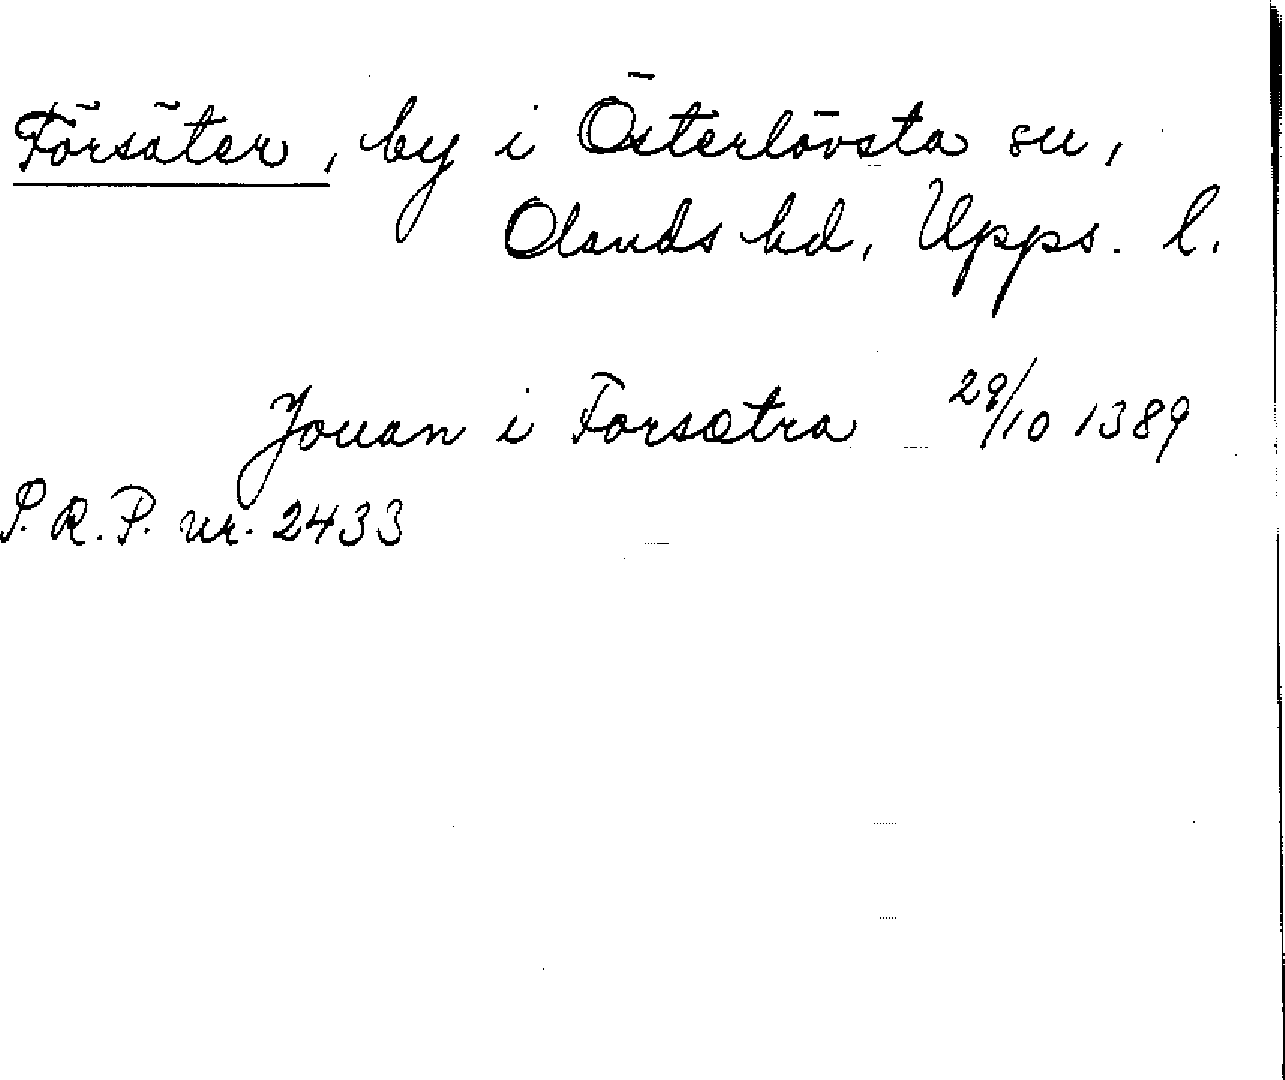 Försäter, by i Österlövsta sn,
Olands hd, Upps. l.
Jouan i Forsætra 29/10 1389
S.R.P. nr. 2433